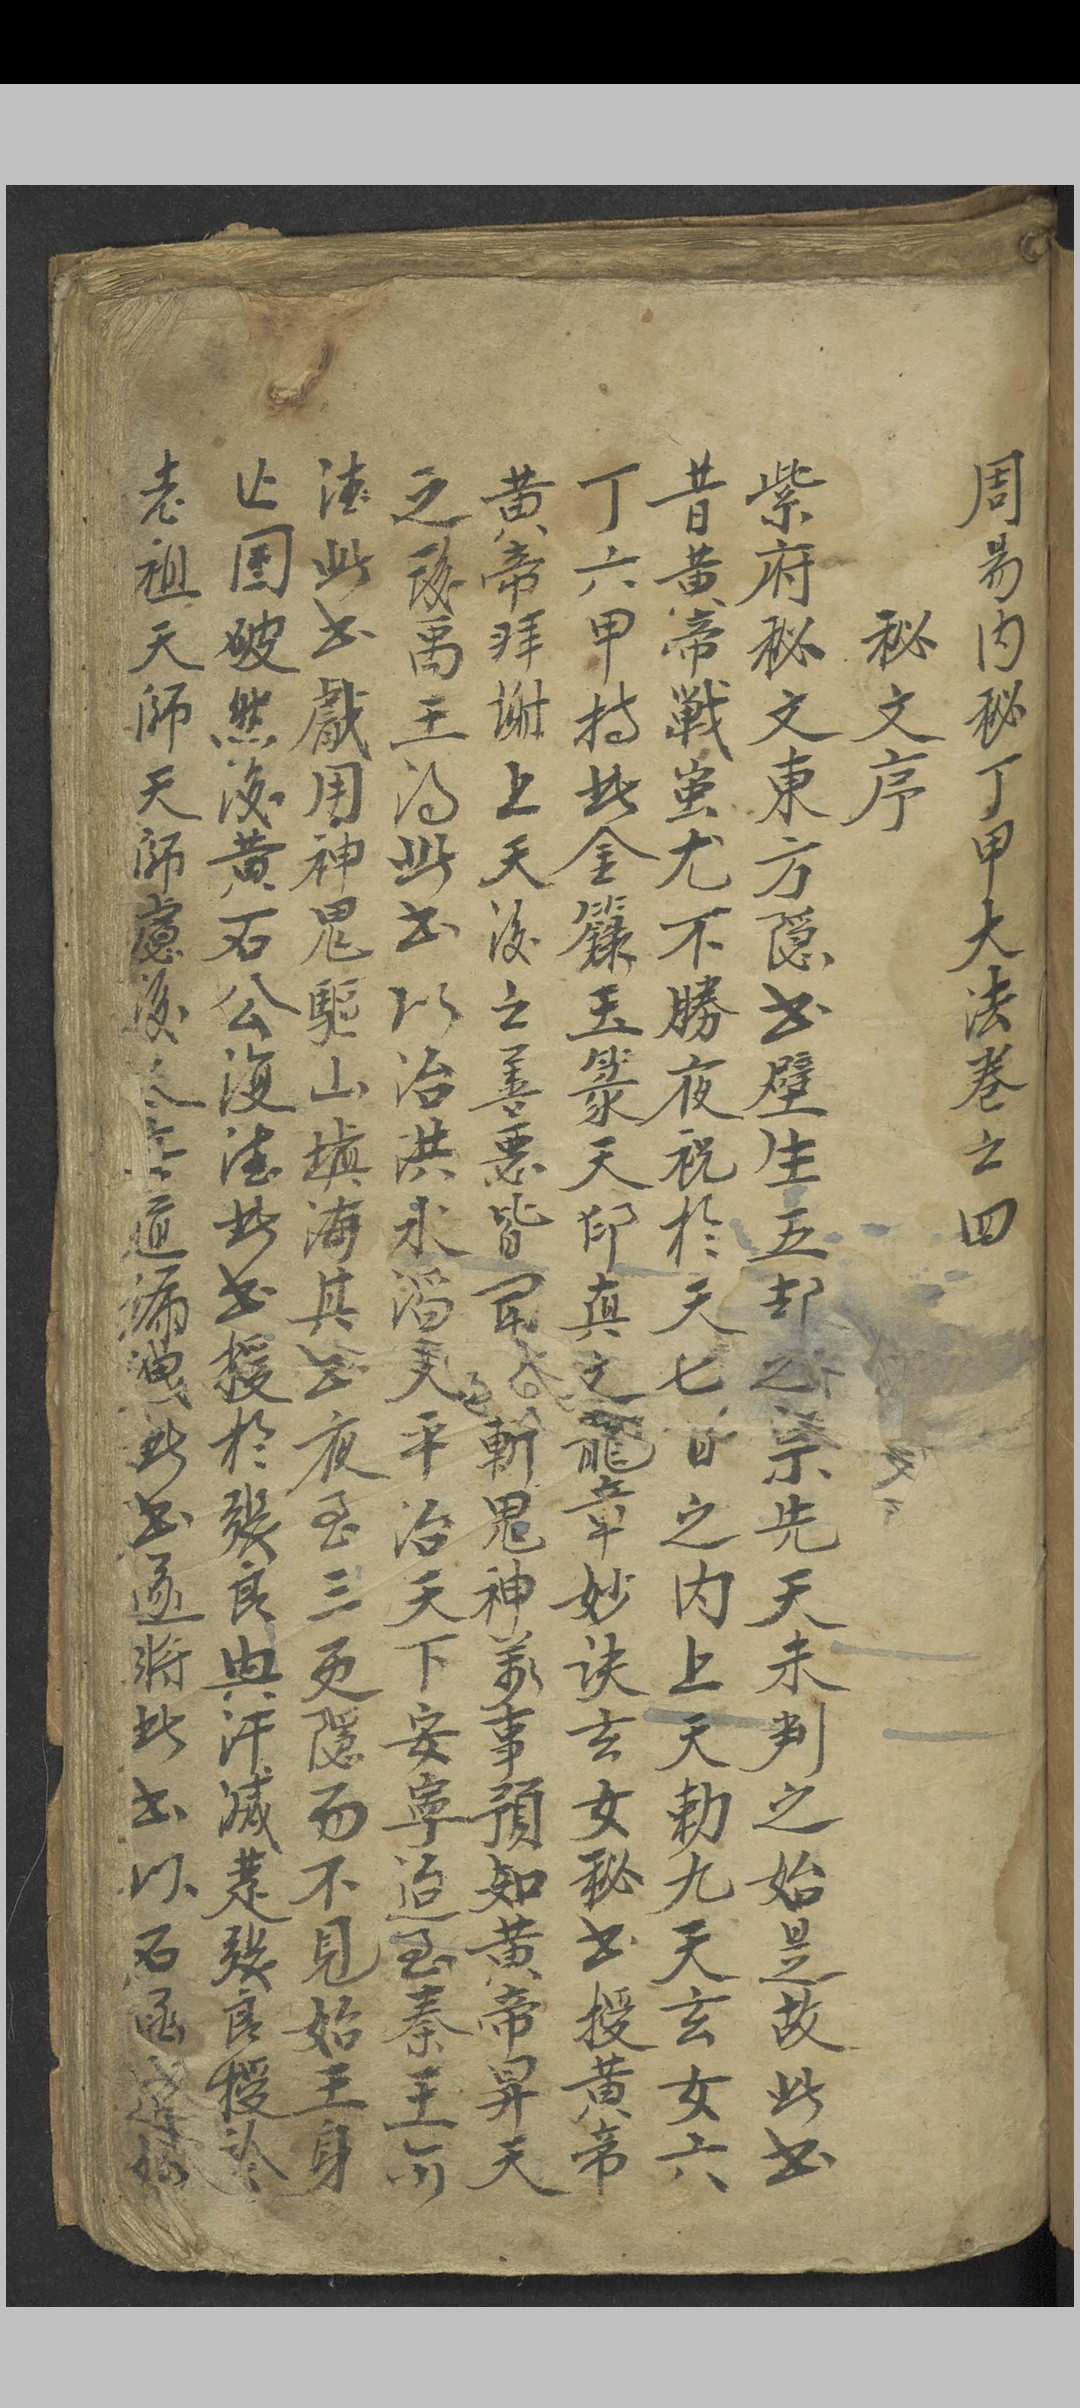 周易内秘丁甲大法卷之四
秘文序
紫府秘文東方隱書壁生五却之宗先天未判之始是故此書
昔黃帝戰蚩尤不勝夜祝於天七日之内上天勅九天玄女六
丁六甲持此金籙玉篆天印真文龍章妙訣玄女秘書授黃帝
黃帝拜謝上天後之善惡皆斬鬼神萬事預知黃帝昇天
之後禹王得此書以治洪水滔天平治天下安寧迨至秦王
此書戲用神鬼驅山填海其書夜至三更隱而不見始王身
亡國破然後黃石公復此書授於張良與汗滅楚張良授
老祖天師天師慮後道漏洩此書遂將此書以石函